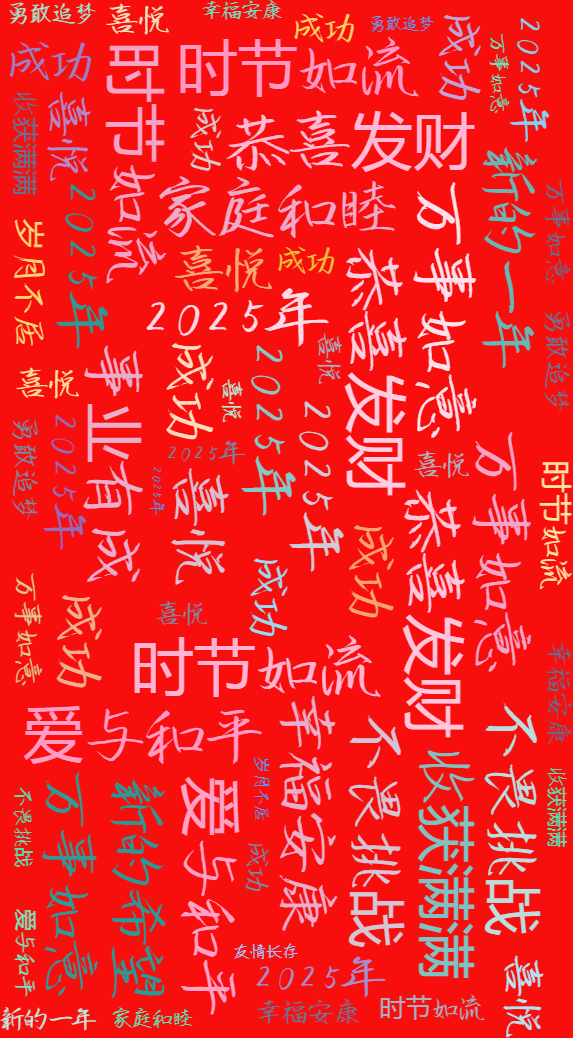 勇敢追梦
喜悦
幸福安康
成功
勇敢追梦
成功
2025年
万事如意
成功
时节如流
时节如流
收获满满
喜悦
成功
恭喜发财
新的一年
2025年
家庭和睦
万事如意
万事如意
岁月不居
喜悦
成功
恭喜发财
2025年
勇敢追梦
喜悦
成功
2025年
喜悦
事业有成
喜悦
2025年
勇敢追梦
2025年
2025年
2025年
喜悦
喜悦
万事如意
时节如流
恭喜发财
成功
成功
万事如意
成功
喜悦
时节如流
幸福安康
爱与和平
幸福安康
不畏挑战
不畏挑战
岁月不居
收获满满
收获满满
不畏挑战
万事如意
新的希望
爱与和平
成功
爱与和平
友情长存
2025年
喜悦
新的一年
家庭和睦
幸福安康
时节如流